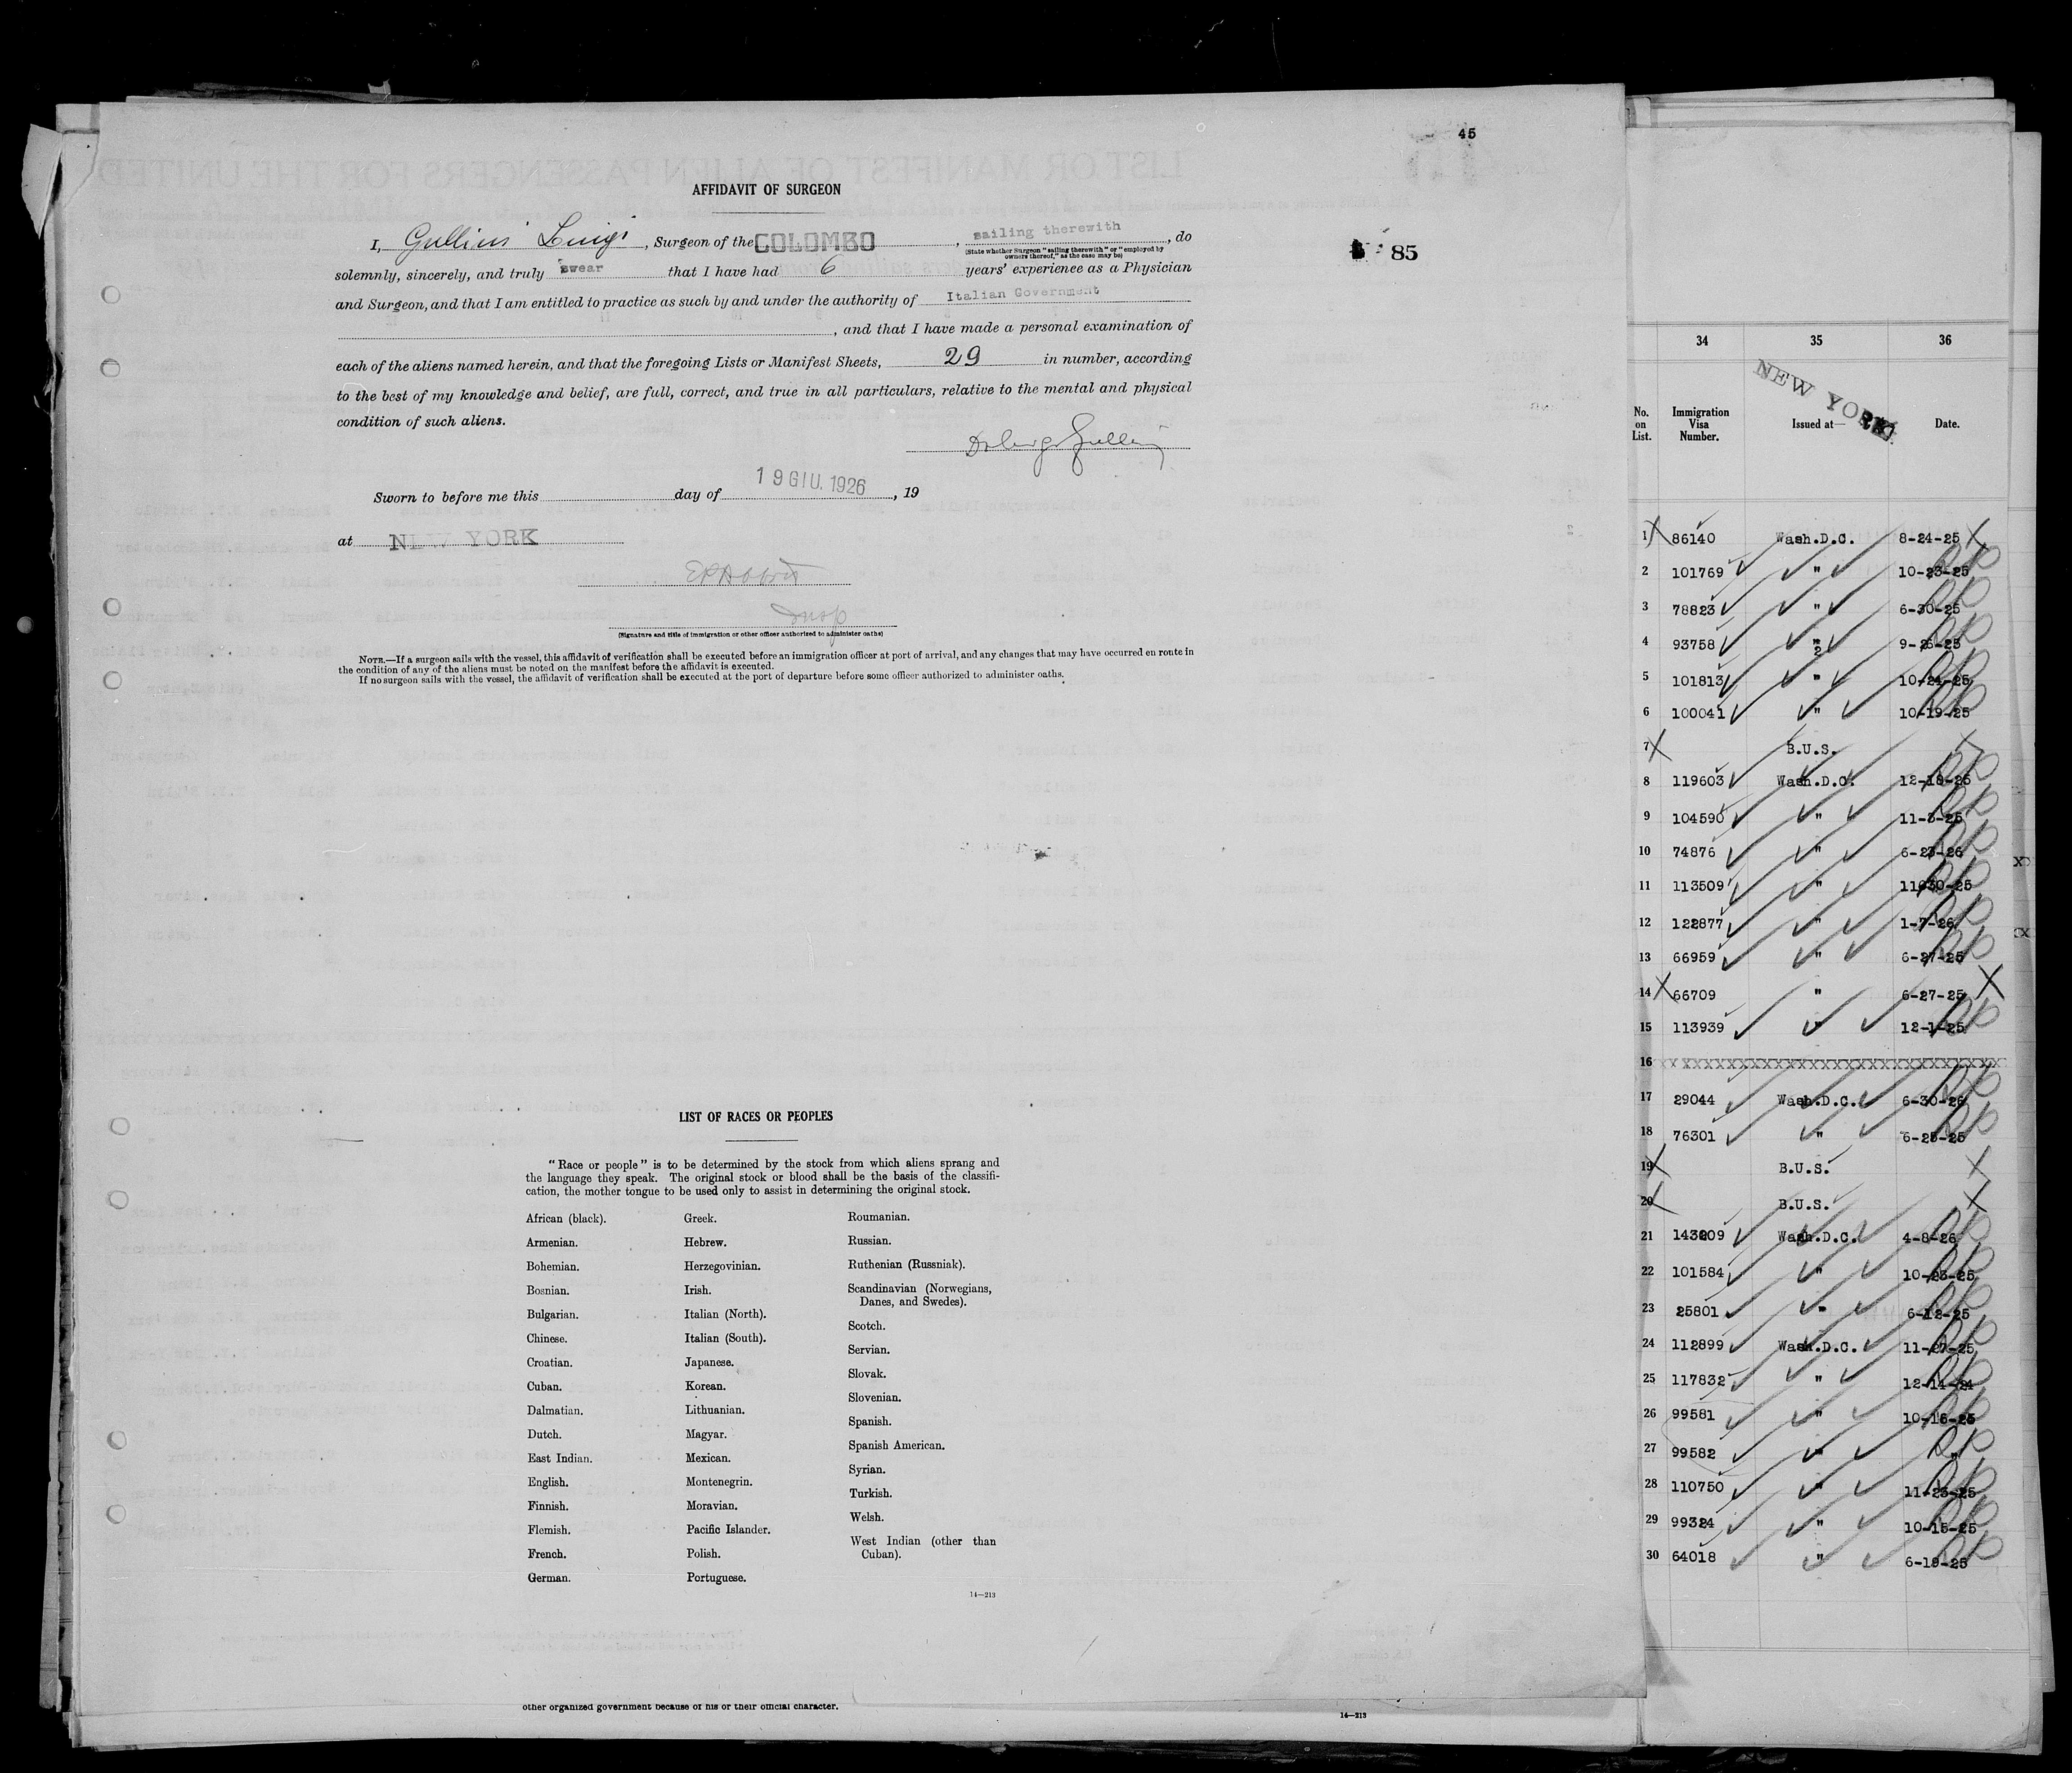 45
AFFIDAVIT OF SURGEON
I, Gullini Luigi, Surgeon of the COLOMBO, sailing therewith, do
(State whether Surgeon "sailing therewith" or "employed by
owners thereof," as the case may be)
85
solemnly, sincerely, and truly swear that I have had 6 years' experience as a Physician
and Surgeon, and that I am entitled to practice as such by and under the authority of Italian Government
, and that I have made a personal examination of
each of the aliens named herein, and that the foregoing Lists or Manifest Sheets, 29 in number, according
to the best of my knowledge and belief, are full, correct, and true in all particulars, relative to the mental and physical
condition of such aliens.
Sworn to before me this day of 19 GIU. 1926, 19
at NEW YORK
Insp
(Signature and title of immigration or other officer authorized to administer oaths)
NOTE.—If a surgeon sails with the vessel, this affidavit of verification shall be executed before an immigration officer at port of arrival, and any changes that may have occurred en route in
the condition of any of the aliens must be noted on the manifest before the affidavit is executed.
If no surgeon sails with the vessel, the affidavit of verification shall be executed at the port of departure before some officer authorized to administer oaths.
LIST OF RACES OR PEOPLES
"Race or people" is to be determined by the stock from which aliens sprang and
the language they speak. The original stock or blood shall be the basis of the classifi-
cation, the mother tongue to be used only to assist in determining the original stock.
African (black).
Armenian.
Bohemian.
Bosnian.
Bulgarian.
Chinese.
Croatian.
Cuban.
Dalmatian.
Dutch.
East Indian.
English.
Finnish.
Flemish.
French.
German.
Greek.
Hebrew.
Herzegovinian.
Irish.
Italian (North).
Italian (South).
Japanese.
Korean.
Lithuanian.
Magyar.
Mexican.
Montenegrin.
Moravian.
Pacific Islander.
Polish.
Portuguese.
Roumanian.
Russian.
Ruthenian (Russniak).
Scandinavian (Norwegians,
Danes, and Swedes).
Scotch.
Servian.
Slovak.
Slovenian.
Spanish.
Spanish American.
Syrian.
Turkish.
Welsh.
West Indian (other than
Cuban).
14—213
other organized government because of his or their official character.
14—213
34 35 36
NEW YORK
No. on List. Immigration Visa Number. Issued at— Date.
1 86140 Wash.D.C. 8-24-25
2 101769 " 10-23-25
3 78823 " 6-30-25
4 93758 " 9-26-25
5 101813 " 10-24-25
6 100041 " 10-19-25
7 B.U.S.
8 119603 Wash.D.C. 12-18-25
9 104590 " 11-3-25
10 74876 " 6-23-26
11 113509 " 11-30-25
12 122877 " 1-7-26
13 66959 " 6-27-25
14 66709 " 6-27-25
15 113939 " 12-1-25
16 XXXXXXXXXXXXXXXXXXXXXXXXXXXX
17 29044 Wash.D.C. 6-30-26
18 76301 " 6-25-25
19 B.U.S.
20 B.U.S.
21 143209 Wash.D.C. 4-8-26
22 101584 " 10-23-25
23 25801 " 6-12-25
24 112899 Wash.D.C. 11-27-25
25 117832 " 12-14-24
26 99581 " 10-16-25
27 99582 " "
28 110750 " 11-23-25
29 99324 " 10-15-25
30 64018 " 6-19-25